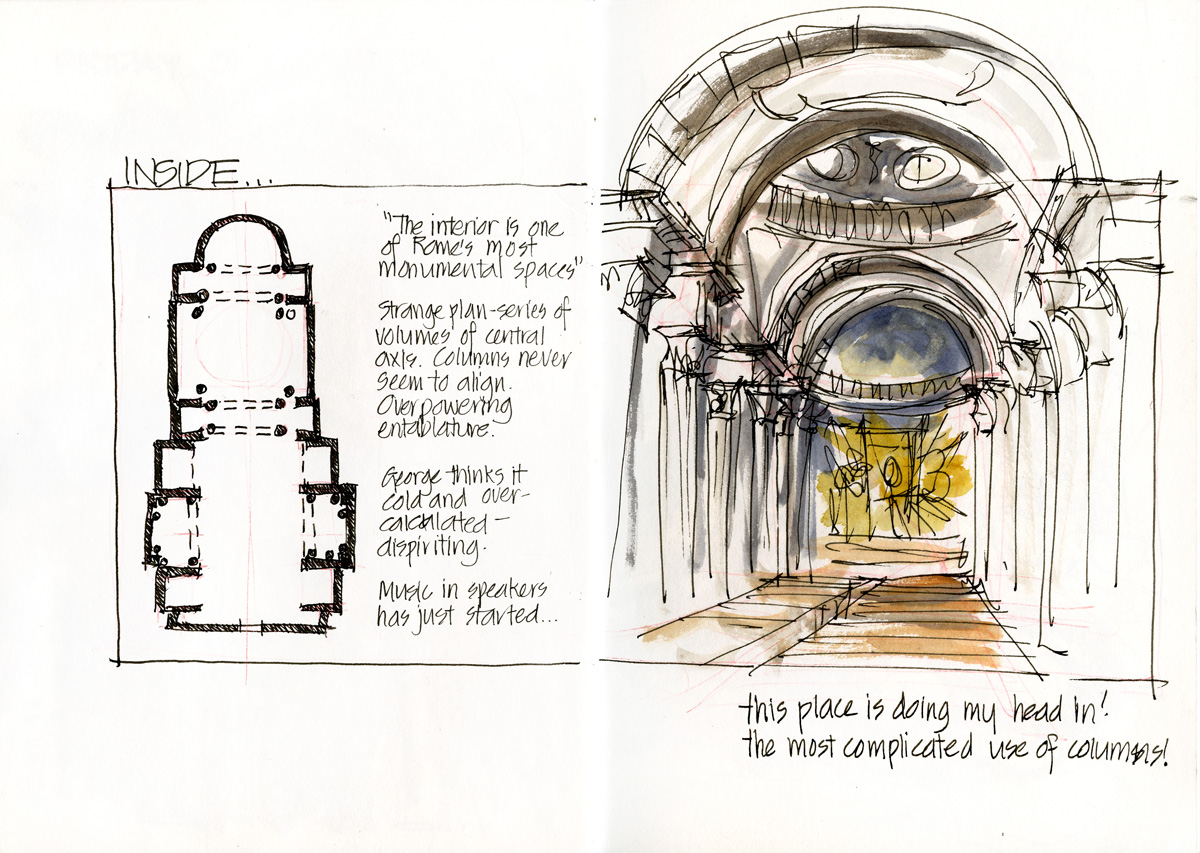 INSIDE...
"The interior is one
of Rome's most
monumental spaces"
Strange plan-series of
volumes of central
axis. Columns never
seem to align.
Overpowering
entablature.
George thinks it
cold and over-
calculated-
dispiriting.
Music in speakers
has just started...
this place is doing my head in!
the most complicated use of columns!